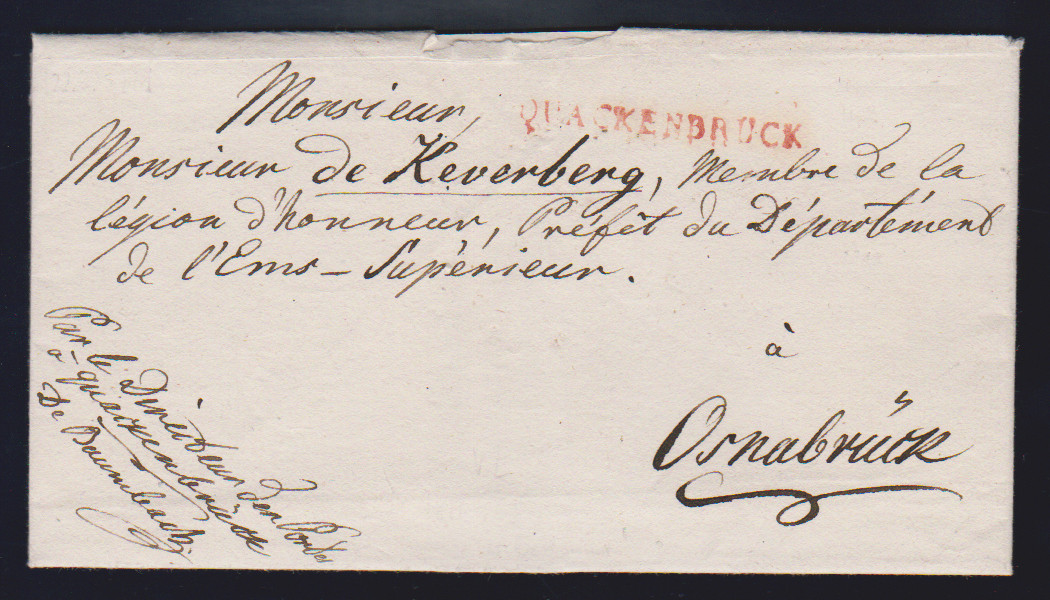 Monsieur,
QUACKENBRÜCK
Monsieur de Keverberg, Membre de la
légion d'honneur, Préfèt du Département
de l'Ems-Supérieur.
à
Osnabrück
Par le Directeur des Postes
à quackenbrück
De Baumbach.